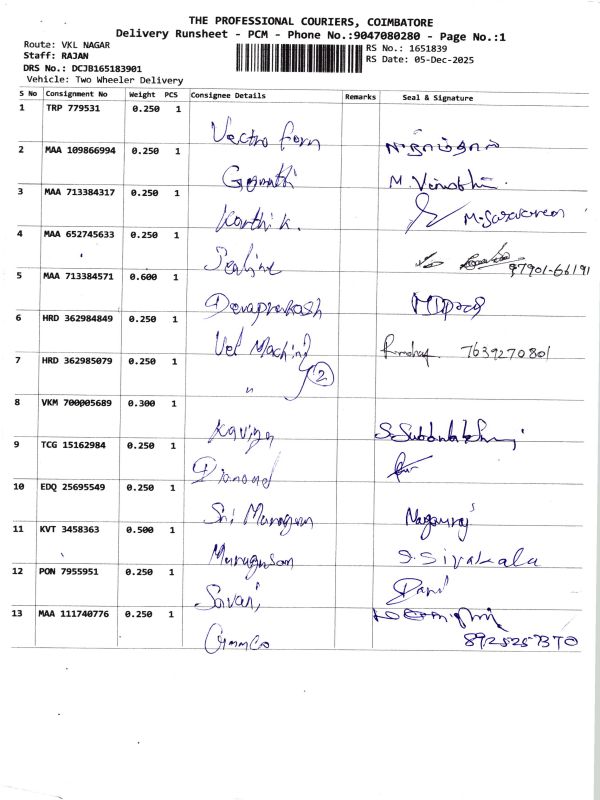 THE PROFESSIONAL COURIERS, COIMBATORE
Delivery Runsheet - PCM - Phone No.:9047080280 - Page No.:1
Route: VKL NAGAR
Staff: RAJAN
DRS No.: DCJB165183901
Vehicle: Two Wheeler Delivery
RS No.: 1651839
RS Date: 05-Dec-2025
S No Consignment No Weight PCS Consignee Details Remarks Seal & Signature
1 TRP 779531 0.250 1
Vectra Form
2 MAA 109866994 0.250 1
Gomathi M.
3 MAA 713384317 0.250 1
Karthik. M. Saravanan
4 MAA 652745633 0.250 1
97901-66191
5 MAA 713384571 0.600 1
Devaprakash
6 HRD 362984849 0.250 1
Vel 7639270801
7 HRD 362985079 0.250 1
" 2
8 VKM 700005689 0.300 1
Kaviya
9 TCG 15162984 0.250 1
Diamond
10 EDQ 25695549 0.250 1
Sri Murugan Nagaraj
11 KVT 3458363 0.500 1
Murugesan S. Sivakala
12 PON 7955951 0.250 1
13 MAA 111740776 0.250 1
Cammco 8925257370